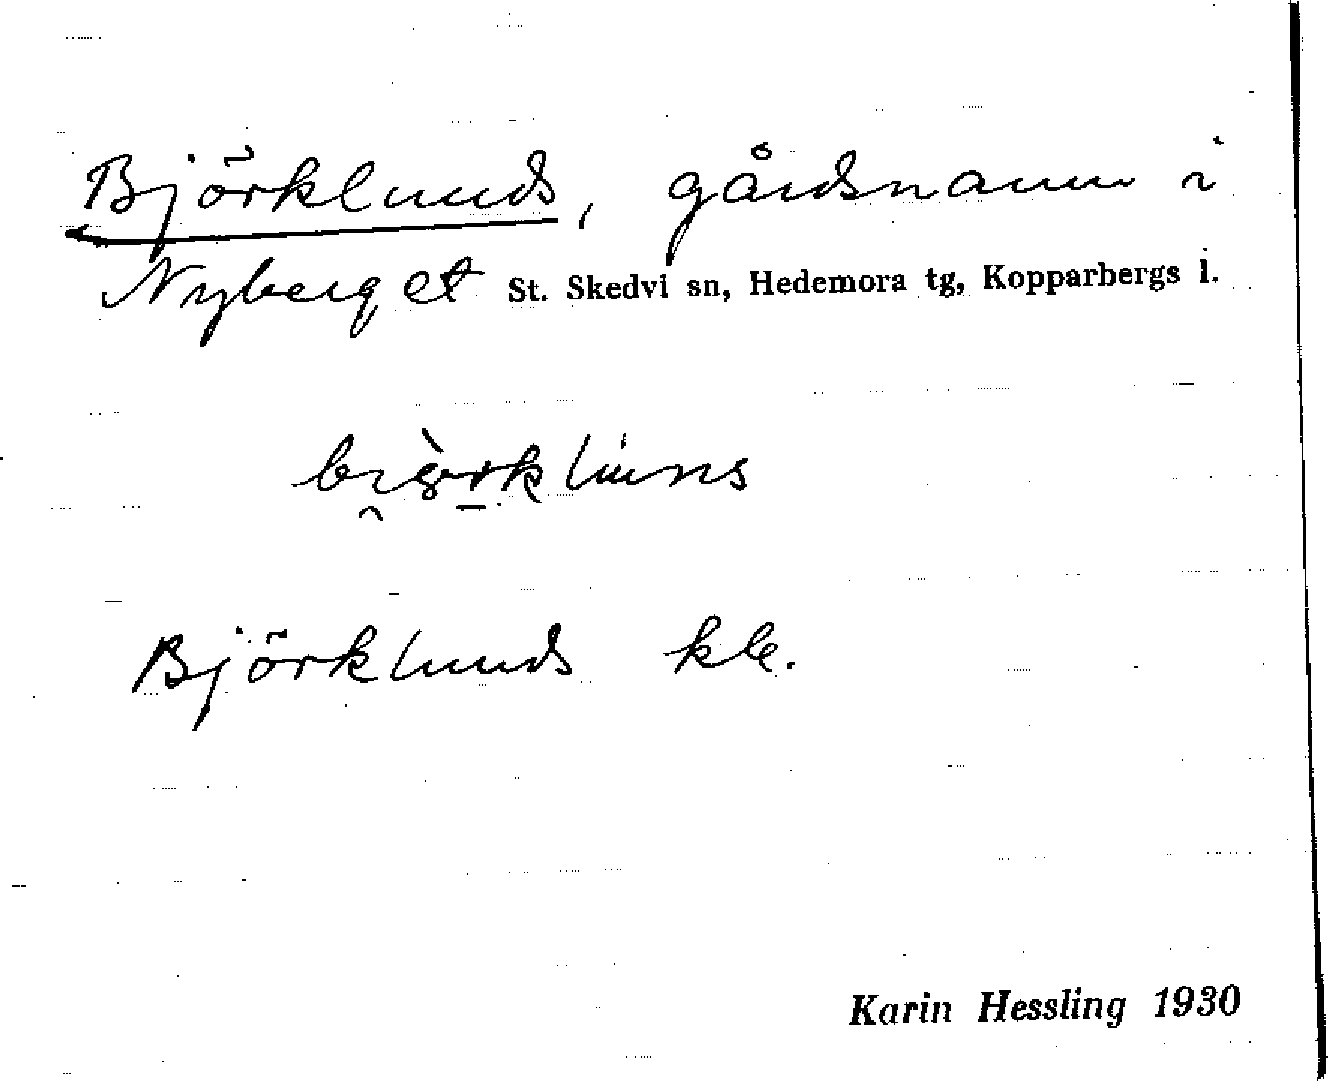 Björklunds, gårdsnamn i
Nyberget St. Skedvi sn, Hedemora tg, Kopparbergs l.
Björklunds kle.
Karin Hessling 1930